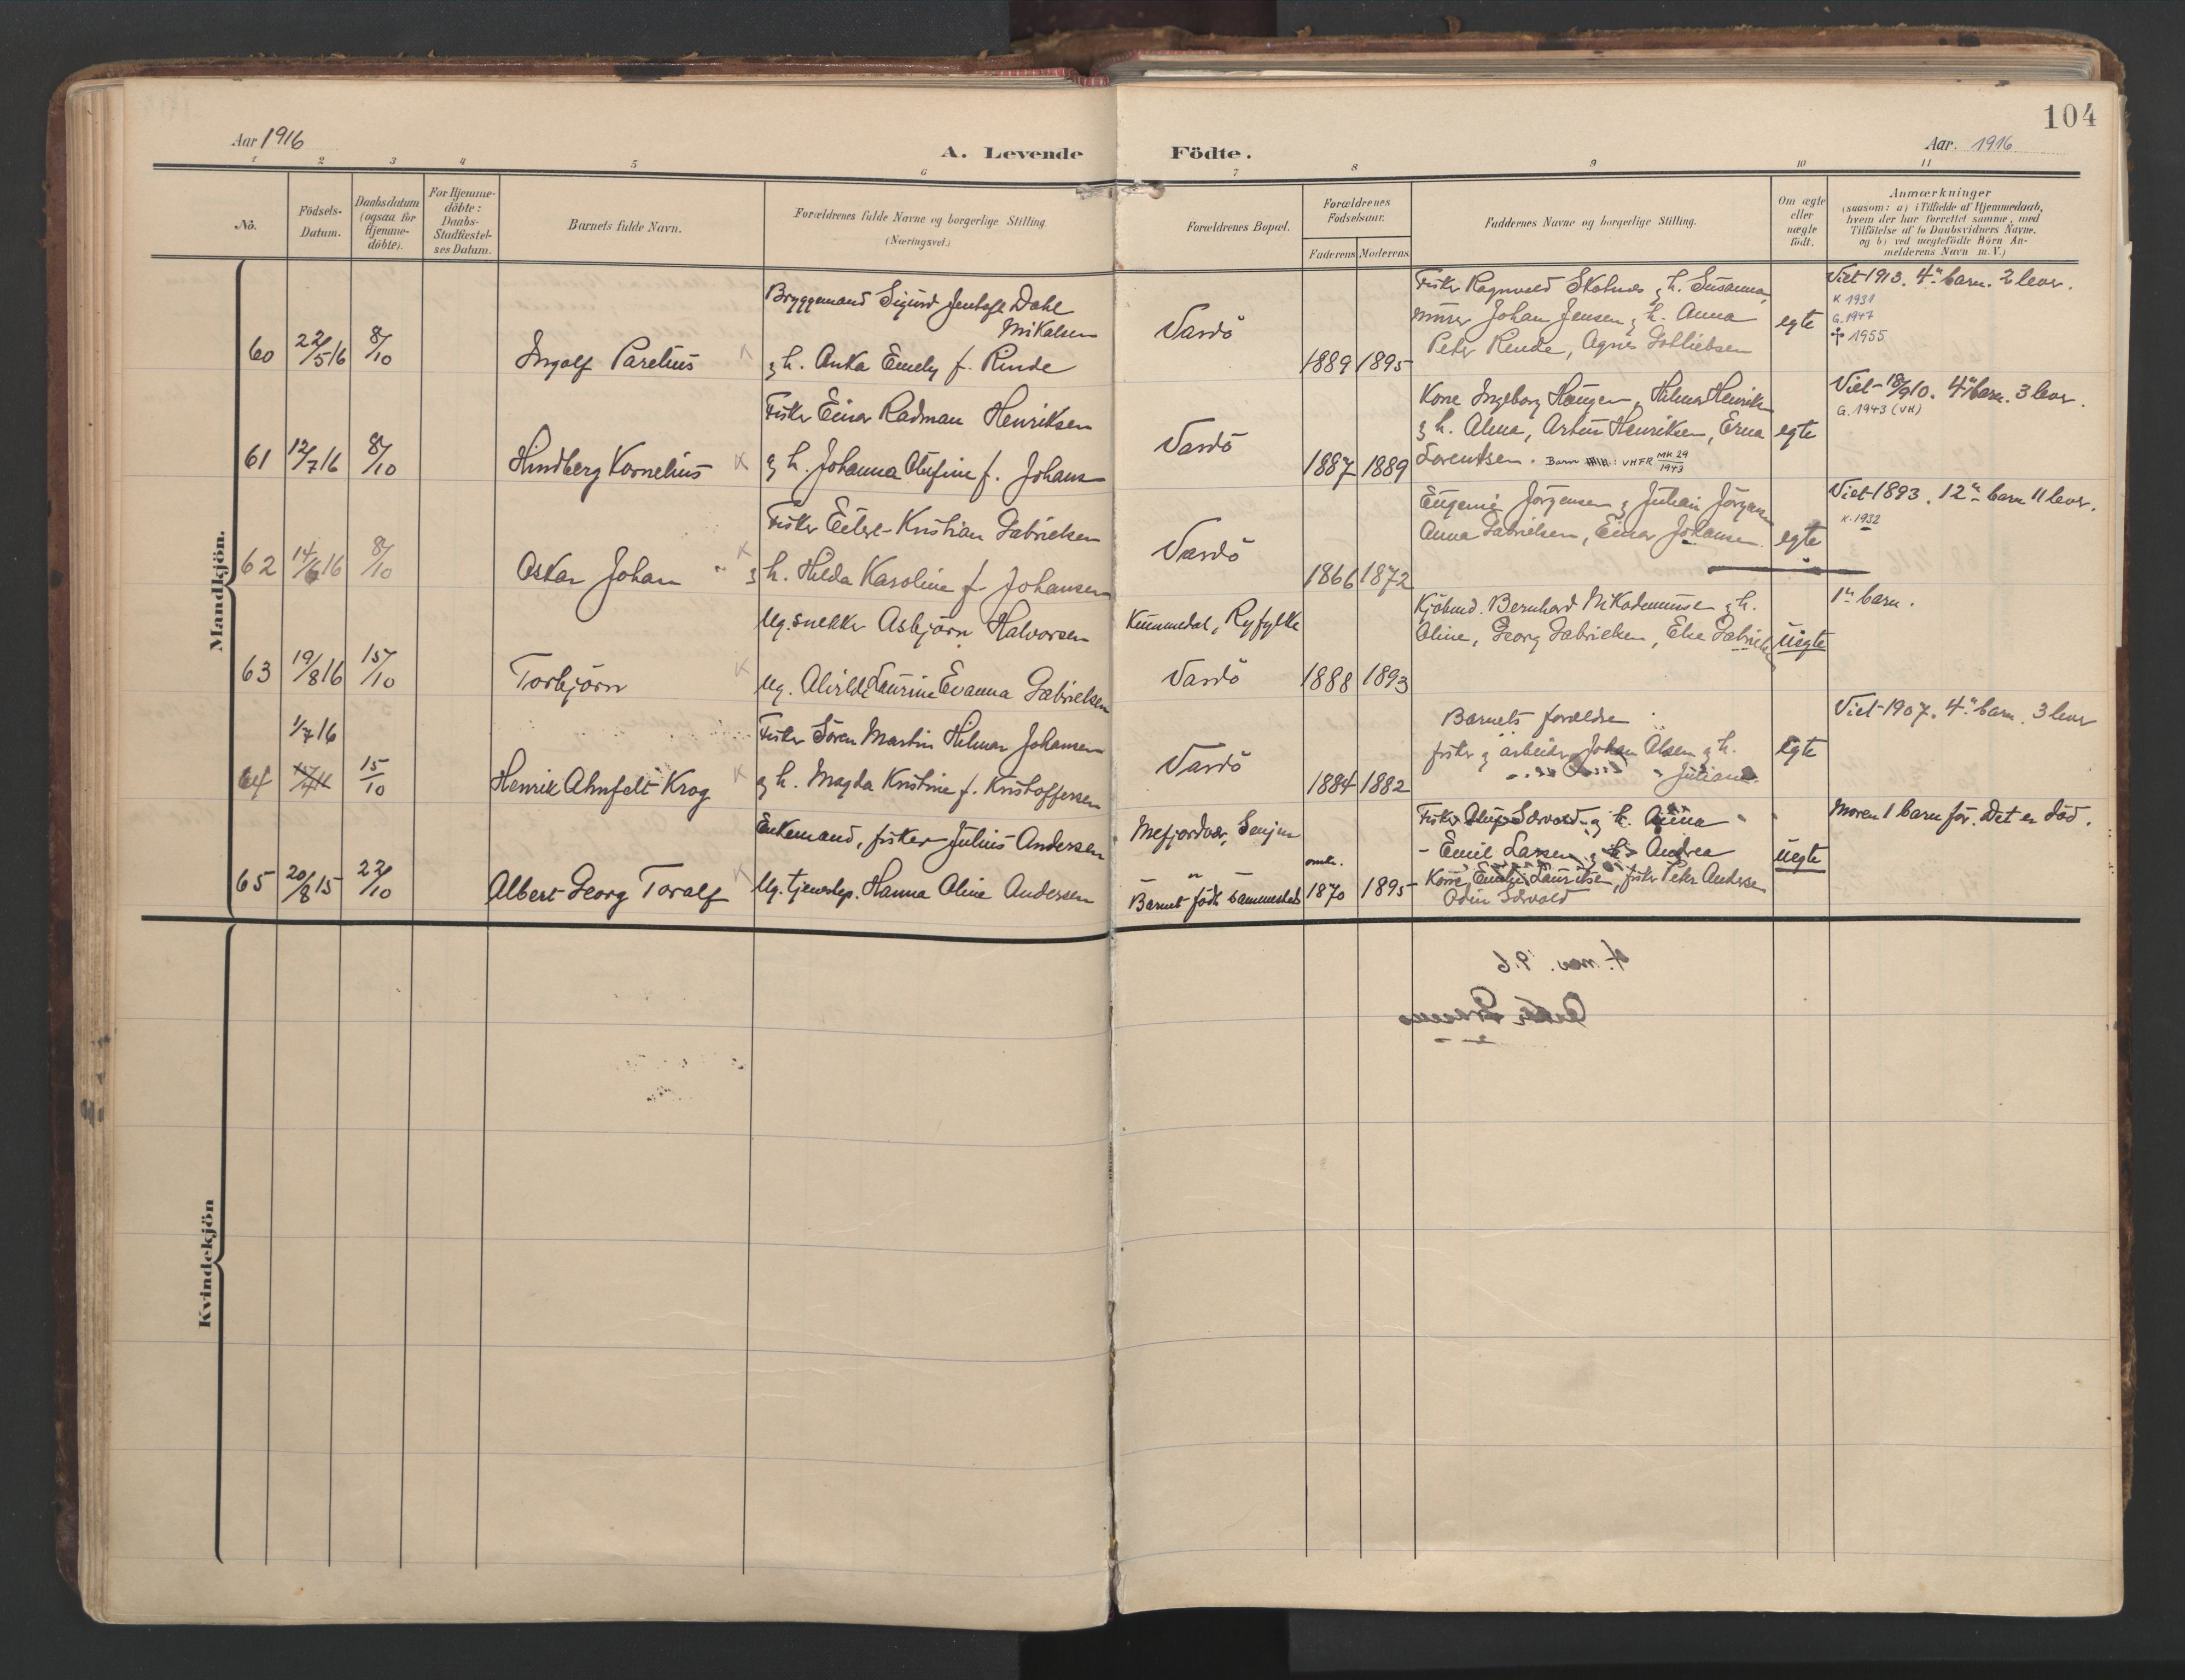 104
Aar 1916
A. Levende
Födte.
Aar. 1916
1 2 3 4 5 6 7 8 9 10 11
No.
Födsels-
Datum.
Daabsdatum
(ogsaa for
Hjemme-
döbte).
For Hjemme-
döbte:
Daabs-
Stadfæstel-
ses Datum.
Barnets fulde Navn.
Forældrenes fulde Navne og borgerlige Stilling
(Næringsvei.)
Forældrenes Bopæl.
Forældrenes
Födselsaar.
Faderens
Moderens
Faddernes Navne og borgerlige Stilling.
Om ægte
eller
uægte
födt.
Anmærkninger
(saasom: a) i Tilfælde af Hjemmedaab,
hvem der har forrettet samme, med
Tilföielse af to Daabsvidners Navne.
og b) ved uægtefödte Börn An-
melderens Navn m. V.)
Mandkjön.
60
22/5 16
8/10
Ingolf Parelius
Bryggemand Sigurd Jentoft Dahl
Mikalsen
& h. Anka Emely f. Rinde
Vardö
1889
1895
Fisker Ragnvald Skotnes & h. Susanna,
murer Johan Jensen & h. Anna
Peter Rende, Agnes Gotliebsen
egte
Viet 1913. 4de barn. 2 lever.
K 1931
G. 1947
✝ 1955
61
12/7 16
8/10
Hindberg Kornelius
Fisker Einar Radman Henriksen
& h. Johanna Olufine f. Johans
Vardö
1887
1889
Kone Ingeborg Haugen, Hilmar Henrik
& h. Alma, Artur Henriksen, Erna
Lorentsen. Barn : VHFR MK 29 1943
egte
Viet 18/9 10. 4de barn. 3 lever.
G. 1943 (VH)
62
14/6 16
8/10
Oskar Johan
Fisker Eilert Kristian Gabrielsen
& h. Hilda Karoline f Johansen
Vardö
1866
1872
Eugenie Jörgensen & Julian Jörgen
Anna Gabrielsen, Einar Johansen.
egte
Viet 1893. 12te barn 11 lever.
K. 1932
63
19/8 16
15/10
Torbjörn
Ug. snekker Asbjörn Halvorsen
Ug. Alvilde Laurine Evanna Gabrielsen
Ryfylke
Vardö
1888
1893
Kjöbmd. Bernhard Nikodemusen & h.
Aline, Georg Gabrielsen, Else Gabriels
uegte
1te barn.
64
1/7 16
15/10
Henrik Ahnfelt Krog
Fisker Sören Martin Hilmar Johansen
& h. Magda Kristine f. Kristoffersen
Vardö
1884
1882
Barnets forældre
fisker & arbeider Johan Olsen & h.
Juliane.
egte
Viet 1907. 4de barn. 3 lever
65
20/8 15
22/10
Albert Georg Toralf
Enkemand, fisker Julius Andersen
Ug. tjenestep. Hanna Oline Andersen
Mefjordvær, Senjen
"
Barnet födt sammesteds
omtr.
1870
1895
Fisker Sörvold & h. Anna
- Emil Larsen & h. Andrea
Kone Emelie Lauritsen, fisker Peter Anderse
Odin Sörvold
uegte
Moren 1 barn för. Det er död.
Kvindekjön